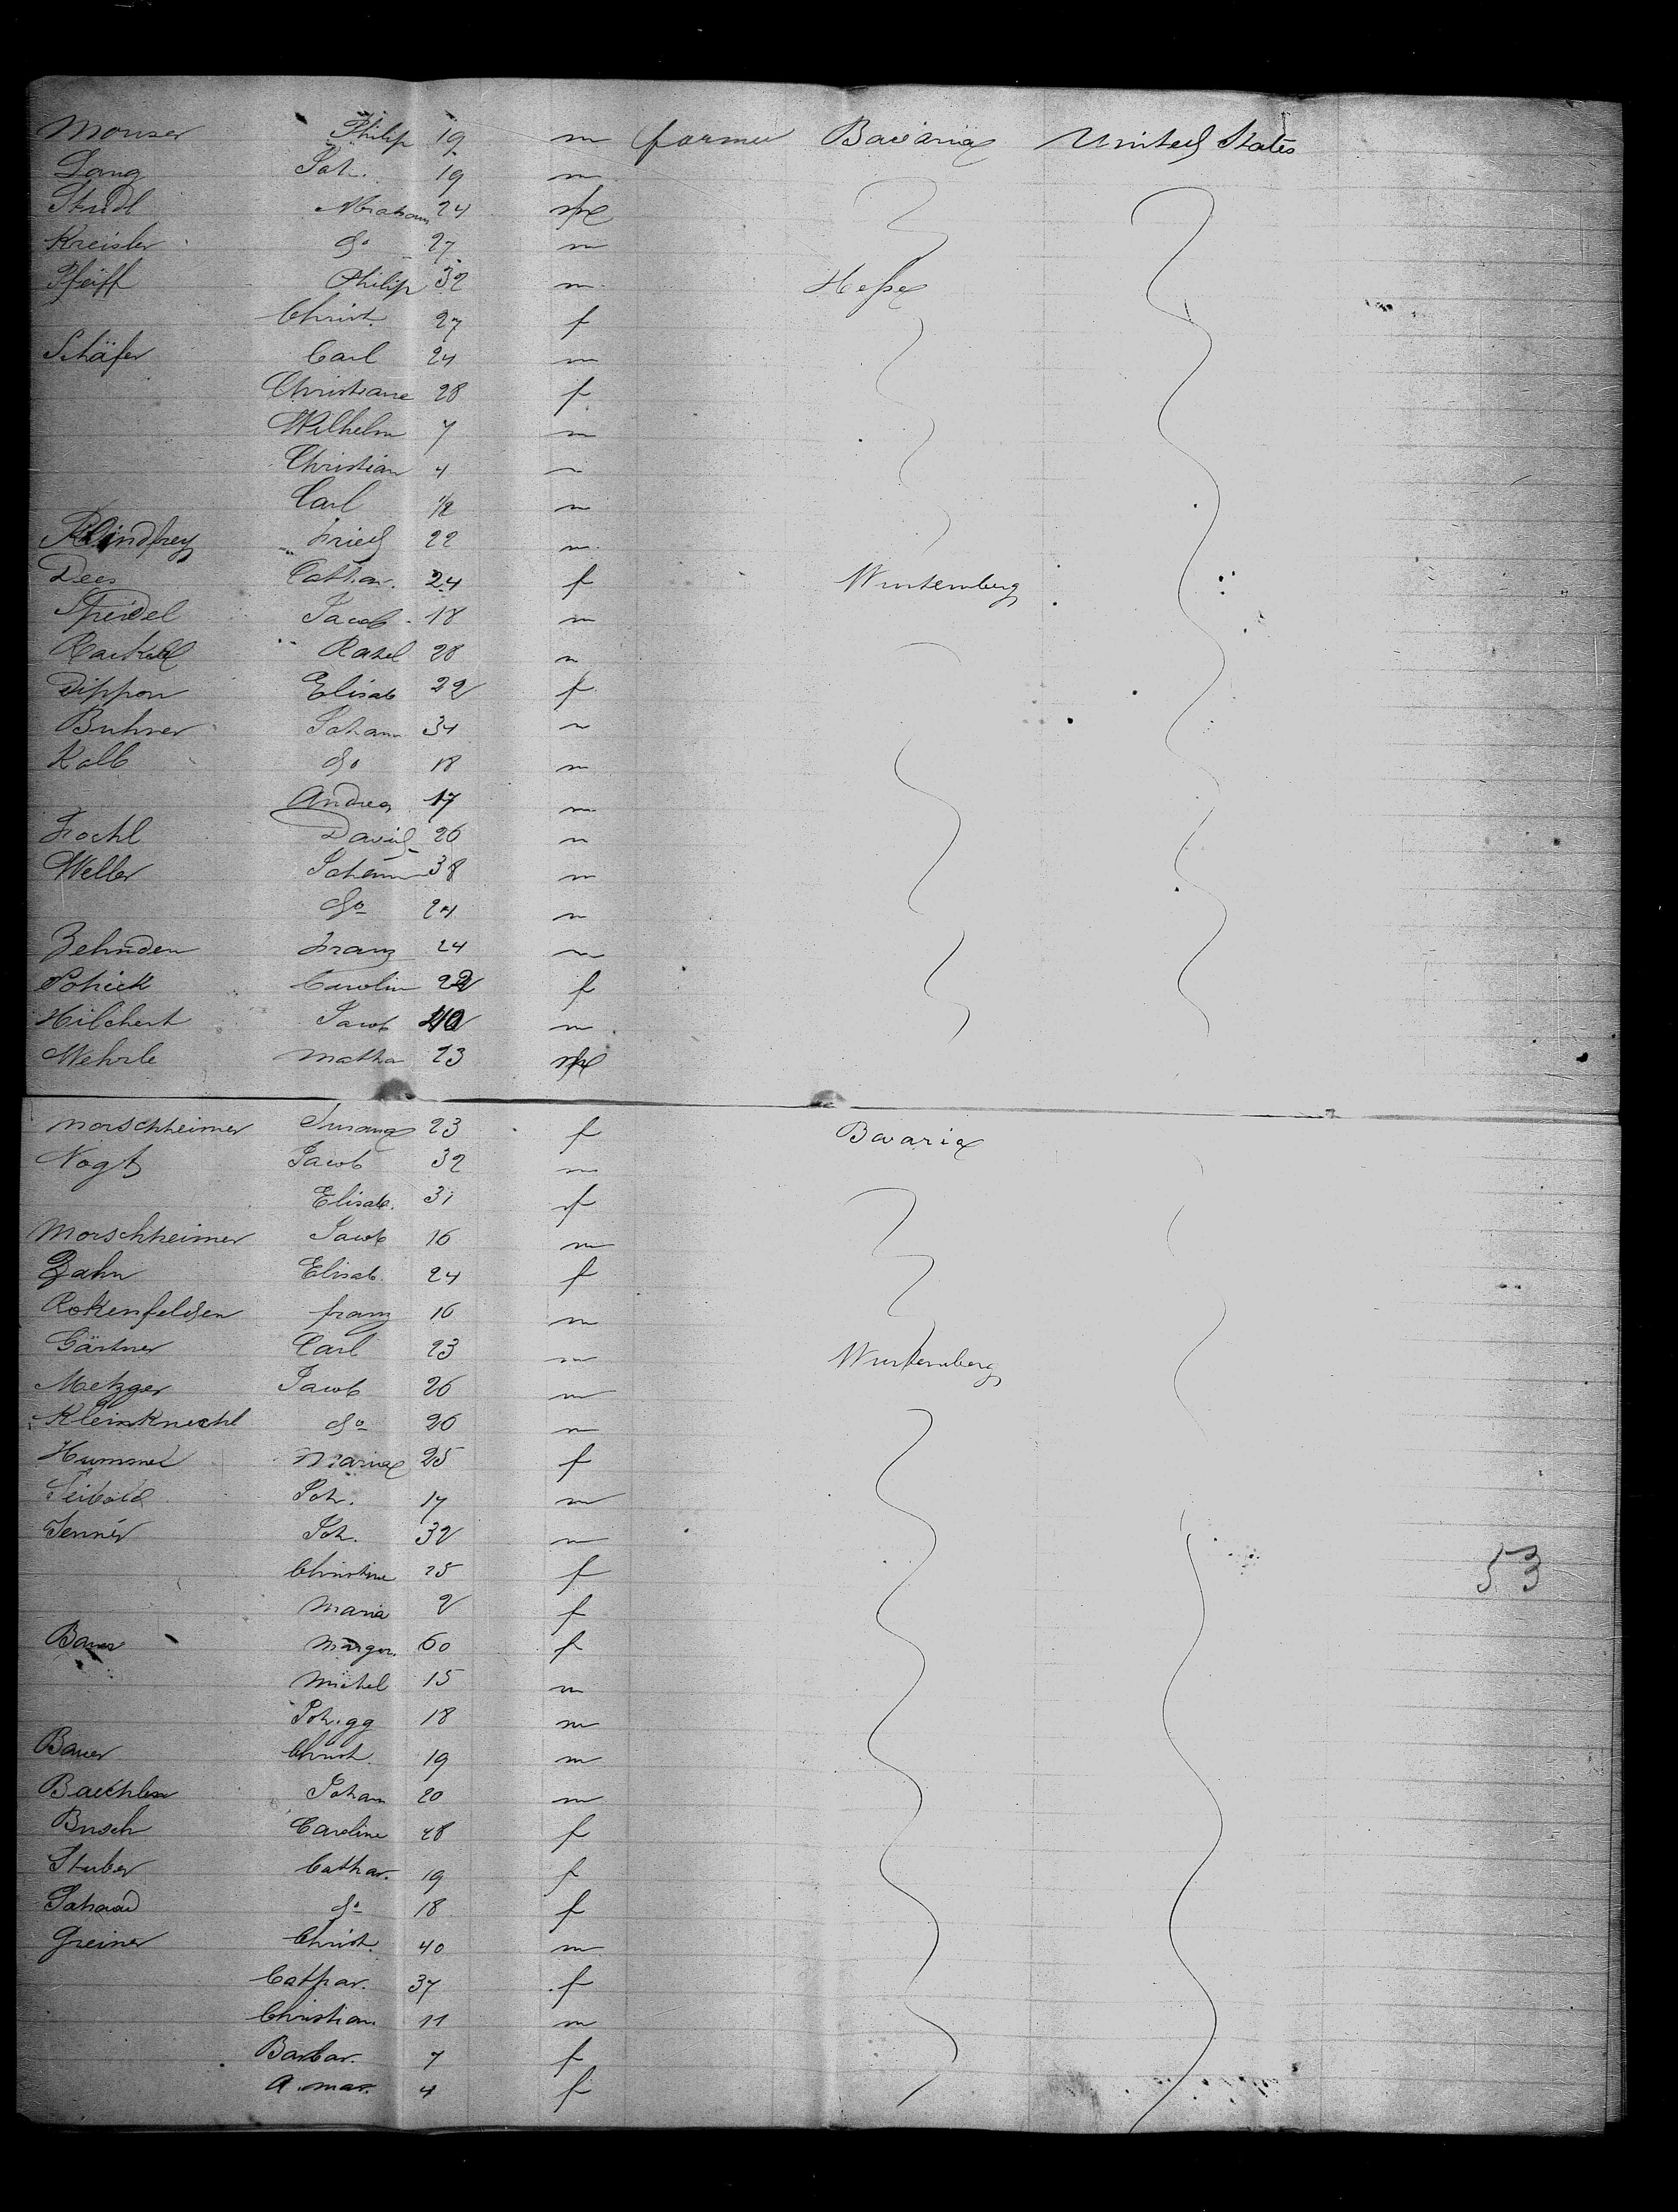 Monser Philip 19 m farmer Bavaria United States
Lang Joh. 19 m
Studl Abraham 24
Kreisler do 27 m
Pfeiff Philip 32 m Hesse
Christ. 27 f
Schäfer Carl 24 m
Christiane 28 f
Wilhelm 7 m
Christian 4 m
Carl 1/2 m
Fried 22 m
Dees Cathar. 24 f Wurtemberg
Speidel Jacob 18 m
28 m
Dippon Elisab 22 f
Buhner Johann 34 m
Kalb do 18 m
Andreas 17 m
David 26 m
Weller Johann 38 m
do 24 m
Zehnden Franz 24 m
Schick Carolin 22 f
Hilchert Jacob m
Wehrle Matha 23
Morschheimer Susana 23 f Bavaria
Vogt Jacob 32 m
Elisab. 31 f
Morschheimer Jacob 16 m
Zahn Elisab. 24 f
Rokenfelden franz 16 m
Gärtner Carl 23 m Wurtemberg
Metzger Jacob 26 m
Kleinknecht do 26 m
Hummel Maria 25 f
Seibold Joh. 17 m
Jenner Joh. 32 m
Christine 25 f 53
Maria 2 f
Bauer Margar. 60 f
Michel 15 m
Joh. gg 18 m
Bauer Christ. 19 m
Baechlen Johan 20 m
Busch Caroline 28 f
Stuber Cathar. 19 f
do 18 f
Greiner Christ. 40 m
Cathar. 37 f
Christian 11 m
Barbar. 7 f
A. mar. 4 f